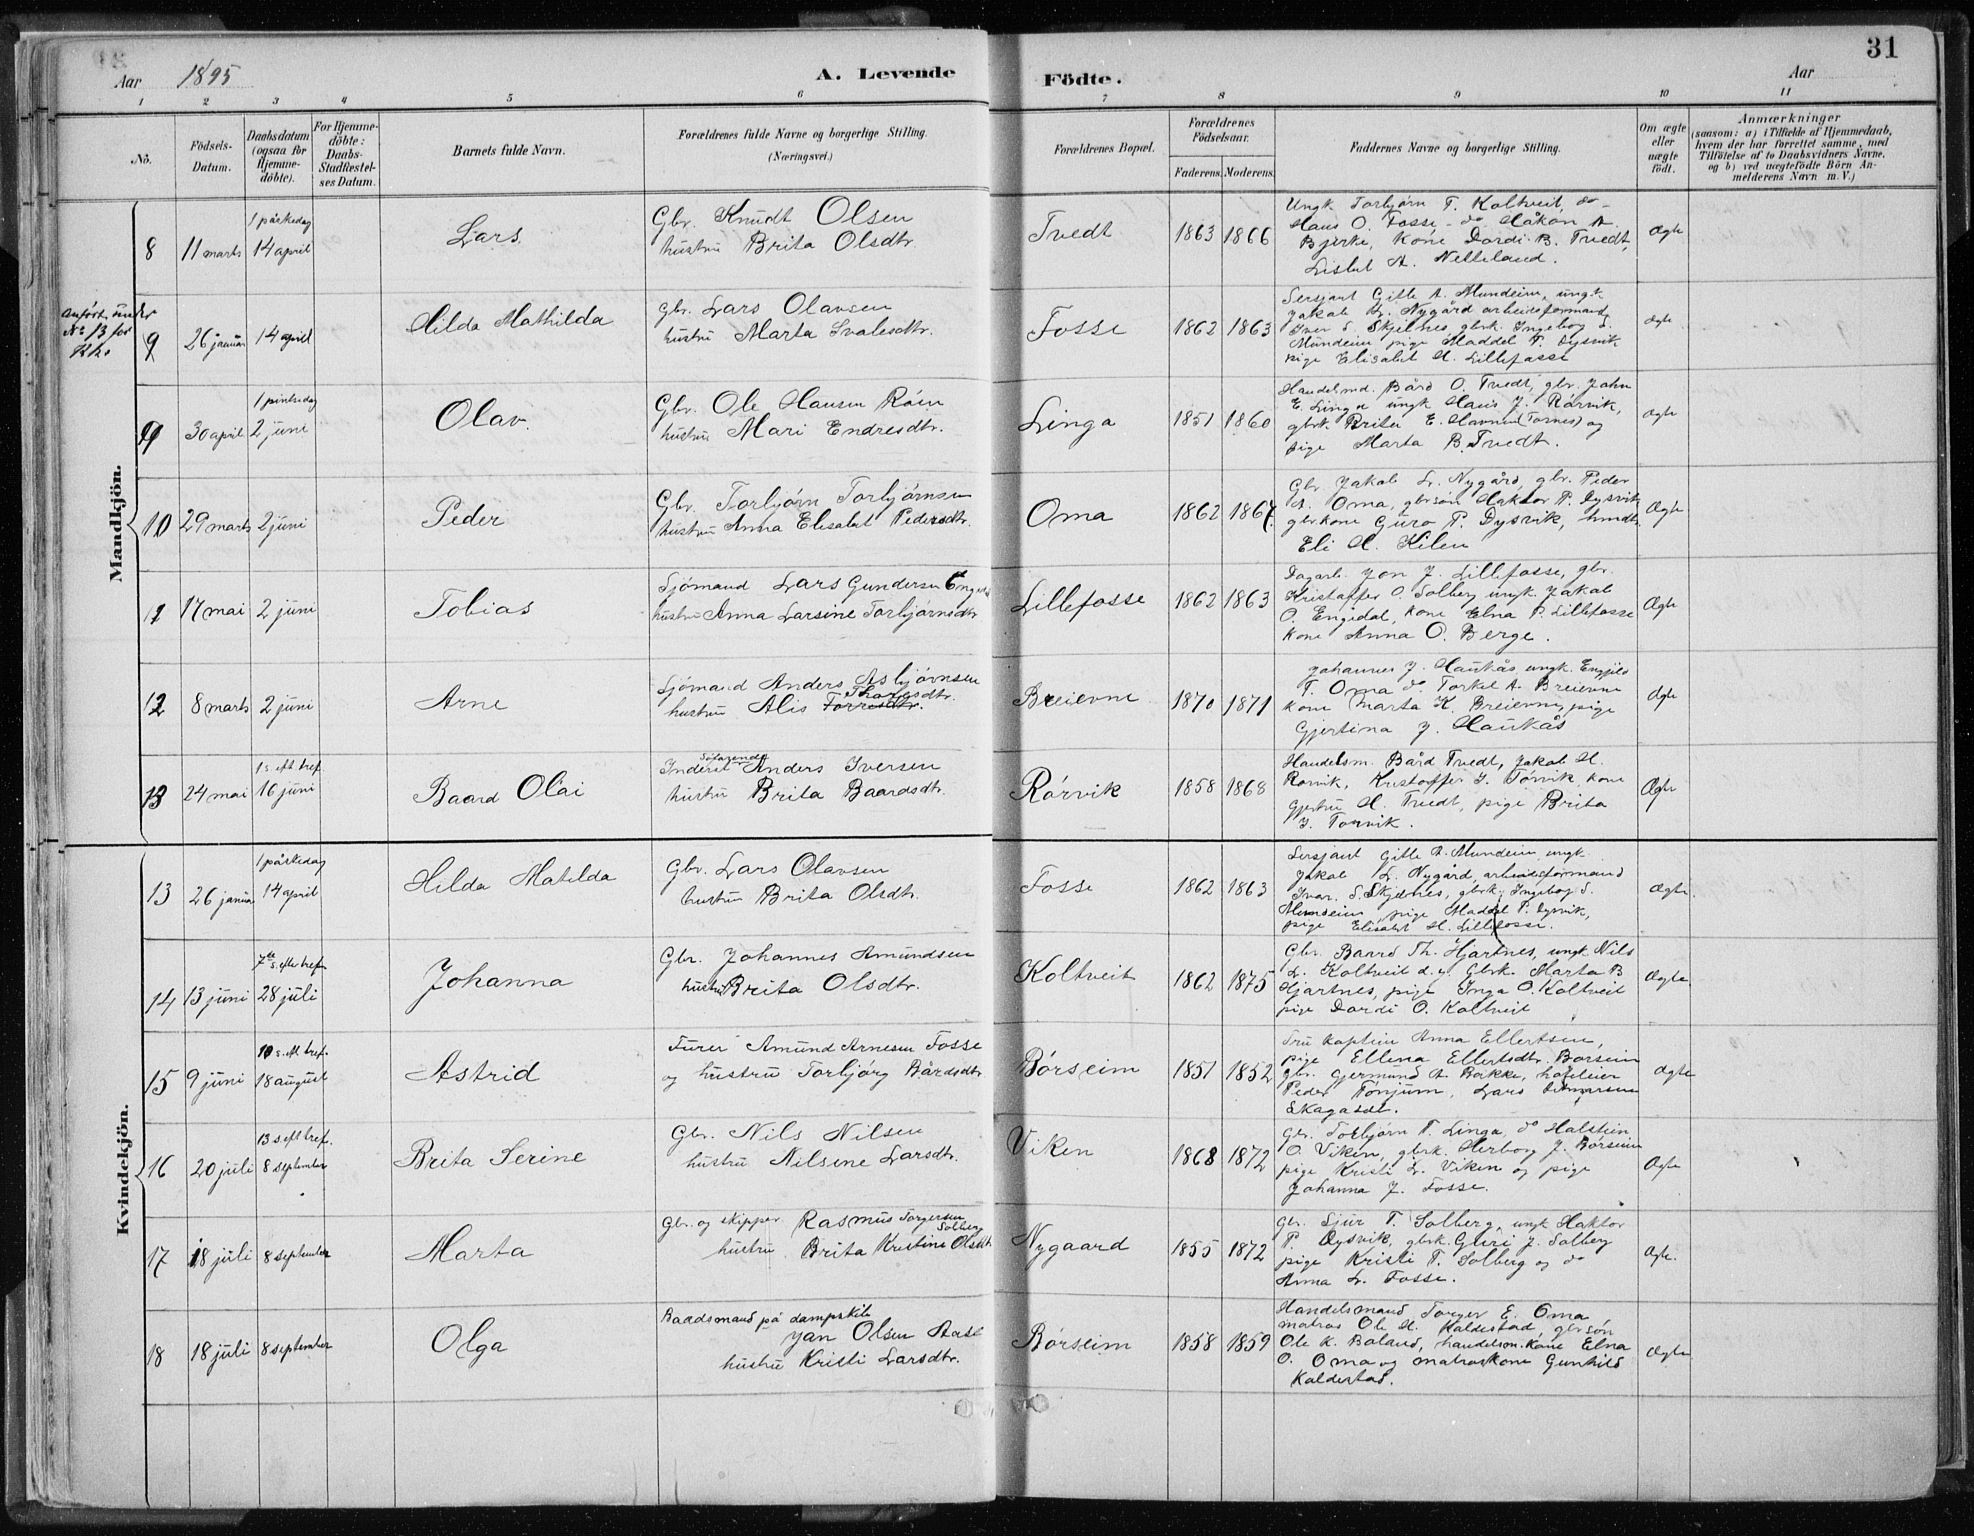 31
Aar 1895
A. Levende Födte.
Aar
1 2 3 4 5 6 7 8 9 10 11
No.
Födsels-Datum.
Daabsdatum (ogsaa for Hjemme-döbte).
For Hjemme-döbte: Daabs-Stadfæstel-ses Datum.
Barnets fulde Navn.
Forældrenes fulde Navne og borgerlige Stilling. (Næringsvei.)
Forældrenes Bopæl.
Forældrenes Födselsaar.
Faderens. Moderens.
Faddernes Navne og borgerlige Stilling.
Om ægte eller uægte födt.
Anmærkninger
(saasom: a) i Tilfælde af Hjemmedaab, hvem der har forrettet samme, med Tilföielse af to Daabsvidners Navne, og b) ved uægtefödte Börn An-melderens Navn m. V.)
Mandkjön.
8 11 marts 1 påskedag 14 april Lars
Gbr. Knudt Olsen
hustru Brita Olsdtr.
Tvedt 1863 1866
Ungk Torbjørn T. Koltveit, do
Hans O. Fosse do Håkon A.
Bjerke, Kone Dordi B. Tvedt,
Lisbet A. Netteland.
Ægte
Anført under No 13 for Kk.
9 26 januar 14 april Hilda Mathilda
Gbr. Lars Olavsen
hustru Marta Svalesdtr.
Fosse 1862 1863
Sersjant Gitle A. Mundeim, ungk.
Jakob L. Nygård arbeidsformand
Iver S. Skjelnes gbrk. Ingeborg S.
Mundeim pige Maddel P. Dysvik
pige Elisabet H. Lillefosse
Ægte
9 30 april 1 pintsedag 2 juni Olav
Gbr. Ole Hansen Røen
hustru Mari Endresdtr.
Linga 1851 1860
Handelsmd. Bård O. Tvedt, gbr. John
E. Linga ungk Hans J. Rørvik,
gbrk. Brita E. Havnen (Tornes) og
pige Marta B. Tvedt.
Ægte
10 29 marts 2 juni Peder
Gbr. Torbjørn Torbjørnsen
hustru Anna Elisabet Pedersdtr.
Oma 1862 1867
Gbr. Jakob L. Nygård, gbr. Peder
A. Oma, gbrsøn Haktor P. Dysvik
gbrkone Guro P. Dysvik,
Eli H. Kilen
Ægte
11 17 mai 2 juni Tobias
Sjömand Lars Gundersen
hustru Anna Larsine Torbjørnsdtr
Lillefosse 1862 1863
Dagarb. Jon J. Lillefosse, gbr.
Kristoffer O. Solberg ungk Jakob
O. Engedal, kone Elna P. Lillefosse
kone Anna O. Berge.
Ægte
12 8 marts 2 juni Arne
Sjömand Anders Asbjørnsen
hustru Alis Thoresdtr.
Breievne 1870 1871
Johannes J. Haukås ungk. Engjeld
T. Oma do Torkel A. Breievne
kone Marta K. Breievne, pige
Gjertina J. Haukås
Ægte
13 24 mai 1 s. eft tref. 16 juni Baard Olai
Inderst Søfarende Anders Iversen
hustru Brita Baardsdtr.
Rørvik 1858 1868
Handelsm. Bård Tvedt, Jakob H.
Rørvik, Kristoffer J. Torvik, kone
Gjertru H. Tvedt, pige Brita
J. Torvik.
Ægte
Kvindekjön.
13 26 januar 1 påskedag 14 april Hilda Matilda
Gbr. Lars Olavsen
hustru Brita Olsdtr.
Fosse 1862 1863
Sersjant Gitle A. Mundeim ungk
Jakob L. Nygård, arbeidsformand
Ivar S. Skjelnes, gbrk. Ingebog S.
Mundeim, pige Maddel P. Dysvik,
pige Elisabet H. Lillefosse.
Ægte.
14 13 juni 7de s. efter tref 28 juli Johanna
Gbr. Johannes Amundsen
hustru Brita Olsdtr.
Koltveit 1862 1875
Gbr. Baard Th. Hjartnes, ungk Nils
L. Koltveit d.y. Gbrk. Marta B
Hjartnes, pige Inga O. Koltveit
pige Dordi O. Koltveit
Ægte.
15 9 juni 10 s. eft tref. 18 august Astrid
Furer Amund Arnesen Fosse
og hustru Torbjörg Bårdsdtr
Börseim 1851 1852
Fru kaptein Anna Ellertsen,
pige Ellena Ellertsdtr. Børseim
gbr. Gjermund A. Bakke,
Peder Tønjum, Lars
Ægte
16 20 juli 13 s eft tref. 8 september Brita Serine
Gbr. Nils Nilsen
hustru Nilsine Larsdtr.
Viken 1868 1872
Gbr. Torbjørn T. Linga, do Halstein
O. Viken, gbrk. Herborg J. Børseim
pige Kristi L. Viken og pige
Johanna J. Fosse.
Ægte
17 18 juli 8 september Marta
Gbr. og skipper Rasmus Torgersen Solberg
hustru Brita Kristine Olsdtr
Nygaard 1855 1872
Gbr. Sjur T. Solberg, ungk Haktor
P. Dysvik, gbrk. Guri J. Solberg
pige Kristi T. Solberg og do
Anna L. Fosse.
Ægte.
18 18 juli 8 september Olga
Baadsmand på dampskib
Jan Olsen Aase
hustru Kristi Larsdtr.
Börseim 1858 1859
Handelsmand Torger E. Oma
matros Ole H. Kaldestad, gbrsøn
Ole K. Boland, handelsm. kone Elna
O. Oma og matroskone Gunhild
Kaldestad.
Ægte